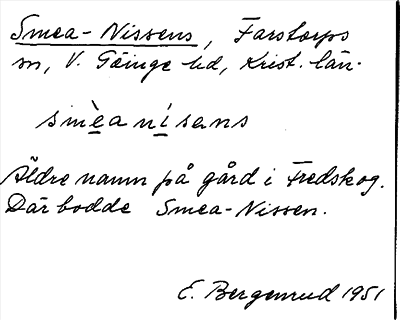 Smea-Nissens, Farstorps
sn, V. Göinge hd, Krist. län.
smèa nísens
Äldre namn på gård i Fredskog.
Där bodde Smea-Nissen.
E. Bergenrud 1951